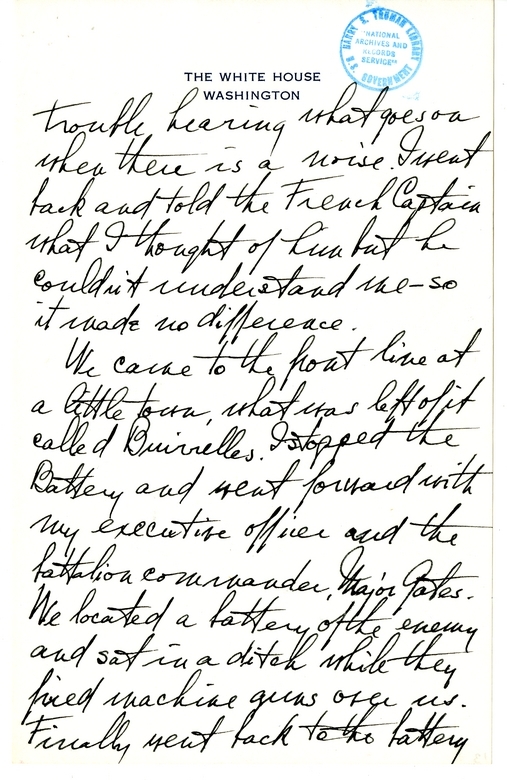 HARRY S. TRUMAN LIBRARY
"NATIONAL
ARCHIVES AND
RECORDS
SERVICE"
U.S. GOVERNMENT
THE WHITE HOUSE
WASHINGTON
trouble hearing what goes on
when there is a noise. I went
back and told the French Captain
what I thought of him but he
couldn't understand me—so
it made no difference.
We came to the front line at
a little town, what was left of it
called Buirelles. I stopped the
Battery and went forward with
my executive officer and the
battalion commander, Major Gates.
We located a battery of the enemy
and sat in a ditch while they
fired machine guns over us.
Finally went back to the battery